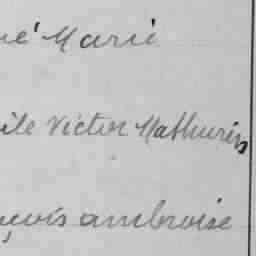 né Marie
ile Victor Mathurin
çois ambroise